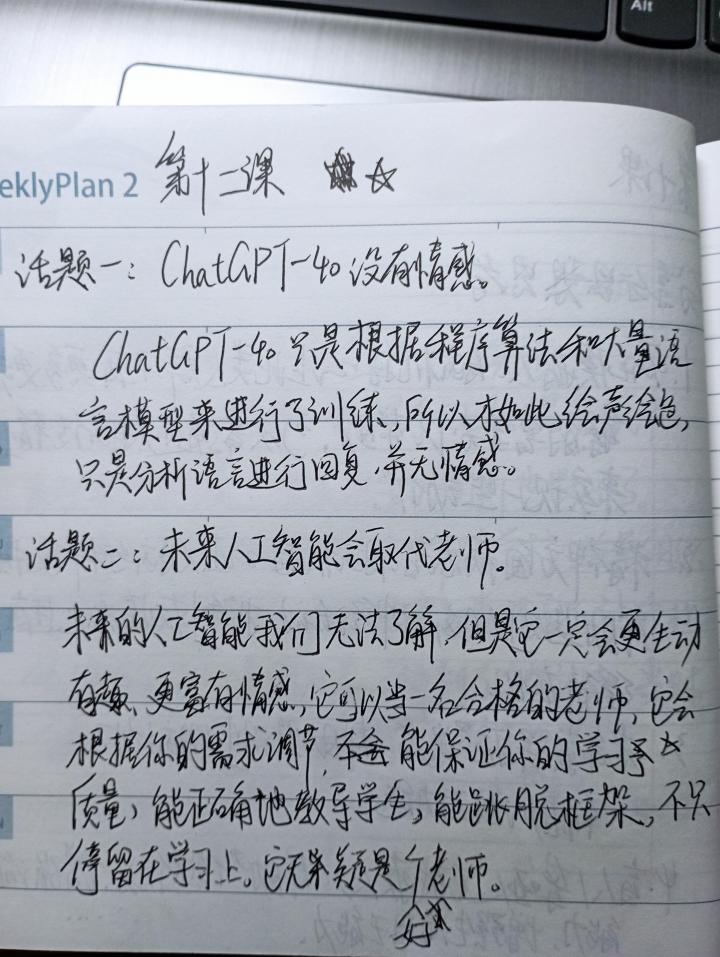 Alt
eklyPlan 2 第十二课
话题一：ChatGPT-4o没有情感。
ChatGPT-4o只是根据程序算法和大量语
言模型来进行了训练，所以才如此绘声绘色，
只是分析语言进行回复，并无情感。
话题二：未来人工智能会取代老师。
未来的人工智能我们无法了解，但是它一定会更生动
有趣、更富有情感，它可以当一名合格的老师，它会
根据你的需求调节，能保证你的学习
质量，能正确地教导学生，能跳脱框架，不只
停留在学习上。它无疑是个老师。
好